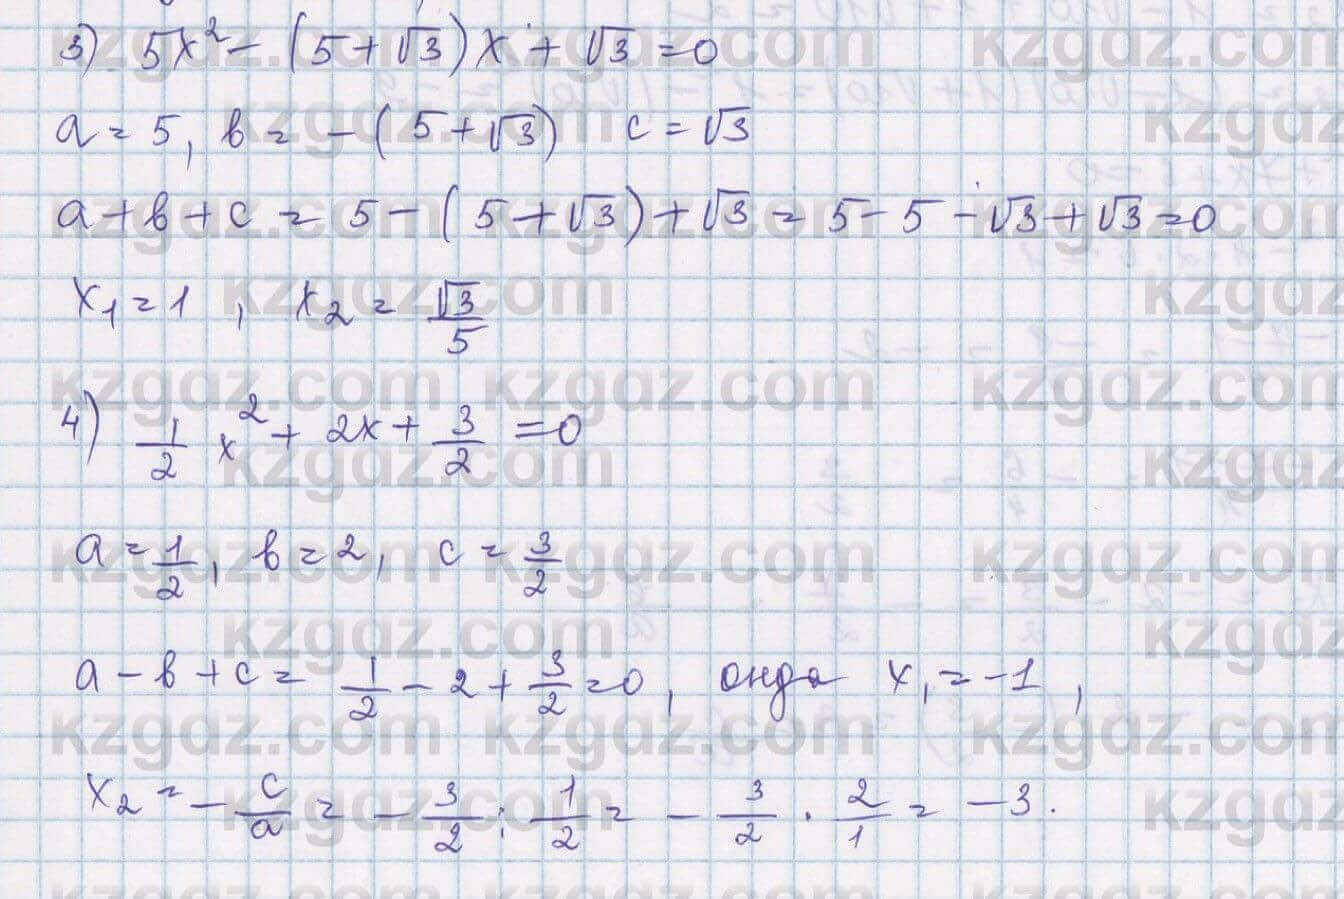 3) 5x² - (5 + √3)x + √3 = 0
a = 5, b = -(5 + √3) c = √3
a + b + c = 5 - (5 + √3) + √3 = 5 - 5 - √3 + √3 = 0
x₁ = 1, x₂ = √3/5
4) 1/2 x² + 2x + 3/2 = 0
a = 1/2, b = 2, c = 3/2
a - b + c = 1/2 - 2 + 3/2 = 0, онда x₁ = -1,
x₂ = - c/a = - 3/2 : 1/2 = - 3/2 · 2/1 = -3.
kzgdz.com